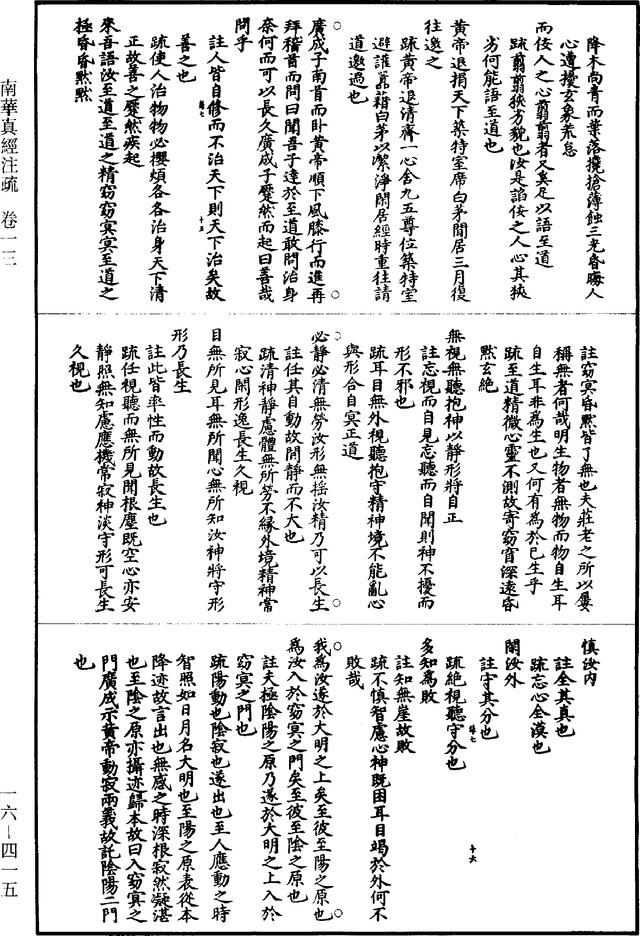 降木尚青而葉落攙搶薄蝕三光昏晦人
心遭擾玄象荒怠
而佞人之心翦翦者又奚足以語至道
疏翦翦狹劣貌也汝是諂佞之人心其狹
劣何能語至道也
黃帝退捐天下築特室席白茅閒居三月復
往邀之
疏黃帝退清齋一心舍九五尊位築特室
避讙囂藉白茅以潔淨閑居經時重往請
道邀過也
廣成子南首而臥黃帝順下風膝行而進再
拜稽首而問曰聞吾子達於至道敢問治身
奈何而可以長久廣成子蹷然而起曰善哉
問乎
註人皆自修而不治天下則天下治矣故
善之也
疏使人治物物必攖煩各各治身天下清
正故善之蹷然疾起
來吾語汝至道至道之精窈窈冥冥至道之
極昏昏默默
註窈冥昏默皆了無也夫莊老之所以屢
稱無者何哉明生物者無物而物自生耳
自生耳非為生也又何有為於已生乎
疏至道精微心靈不測故寄窈冥深遠昏
默玄絕
無視無聽抱神以靜形將自正
註忘視而自見忘聽而自聞則神不擾而
形不邪也
疏耳目無外視聽抱守精神境不能亂心
與形合自冥正道
必靜必清無勞汝形無搖汝精乃可以長生
註任其自動故閒靜而不夭也
疏清神靜慮體無所勞不緣外境精神常
寂心閑形逸長生久視
目無所見耳無所聞心無所知汝神將守形
形乃長生
註此皆率性而動故長生也
疏任視聽而無所見聞根塵既空心亦安
靜照無知慮應機常寂神淡守形可長生
久視也
慎汝內
註全其真也
疏忘心全漠也
閉汝外
註守其分也
疏絕視聽守分也
多知為敗
註知無崖故敗
疏不慎智慮心神既困耳目竭於外何不
敗哉
我為汝遂於大明之上矣至彼至陽之原也
為汝入於窈冥之門矣至彼至陰之原也
註夫極陰陽之原乃遂於大明之上入於
窈冥之門也
疏陽動也陰寂也遂出也至人應動之時
智照如日月名大明也至陽之原表從本
降迹故言出也無感之時深根寂然凝湛
也至陰之原亦攝迹歸本故曰入窈冥之
門廣成示黃帝動寂兩義故託陰陽二門
也
南華真經注疏　卷一三
一六—四一五